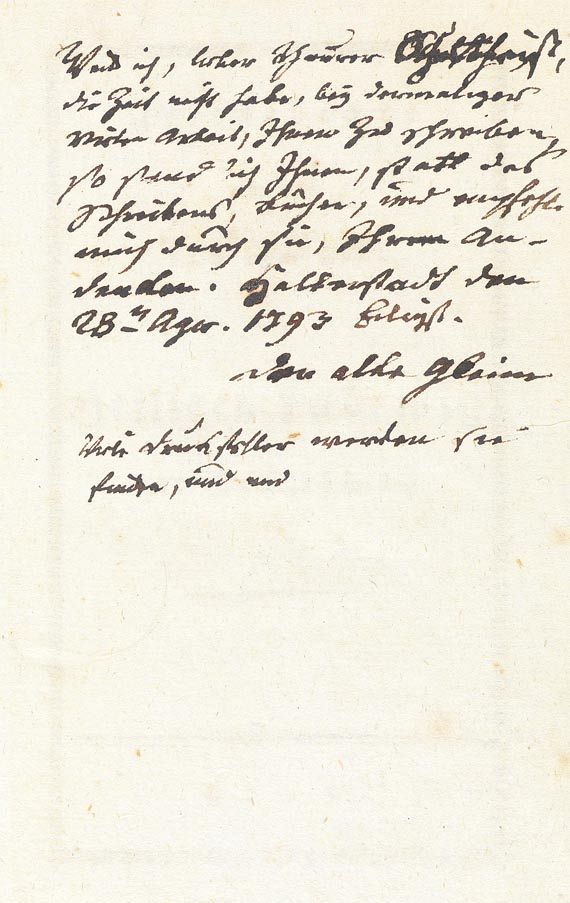 Weil ich, lieber theurer
die Zeit nicht habe, bey dermaliger
vieler Arbeit, Ihnen zu schreiben,
so send ich Ihnen, statt des
Schreibens, Bücher, und empfehle
mich durch sie, Ihrem An-
denken. Halberstadt den
28n Apr. 1793 Eiligst.
Der alte Gleim
Viele Druckfehler werden sie
finden, und